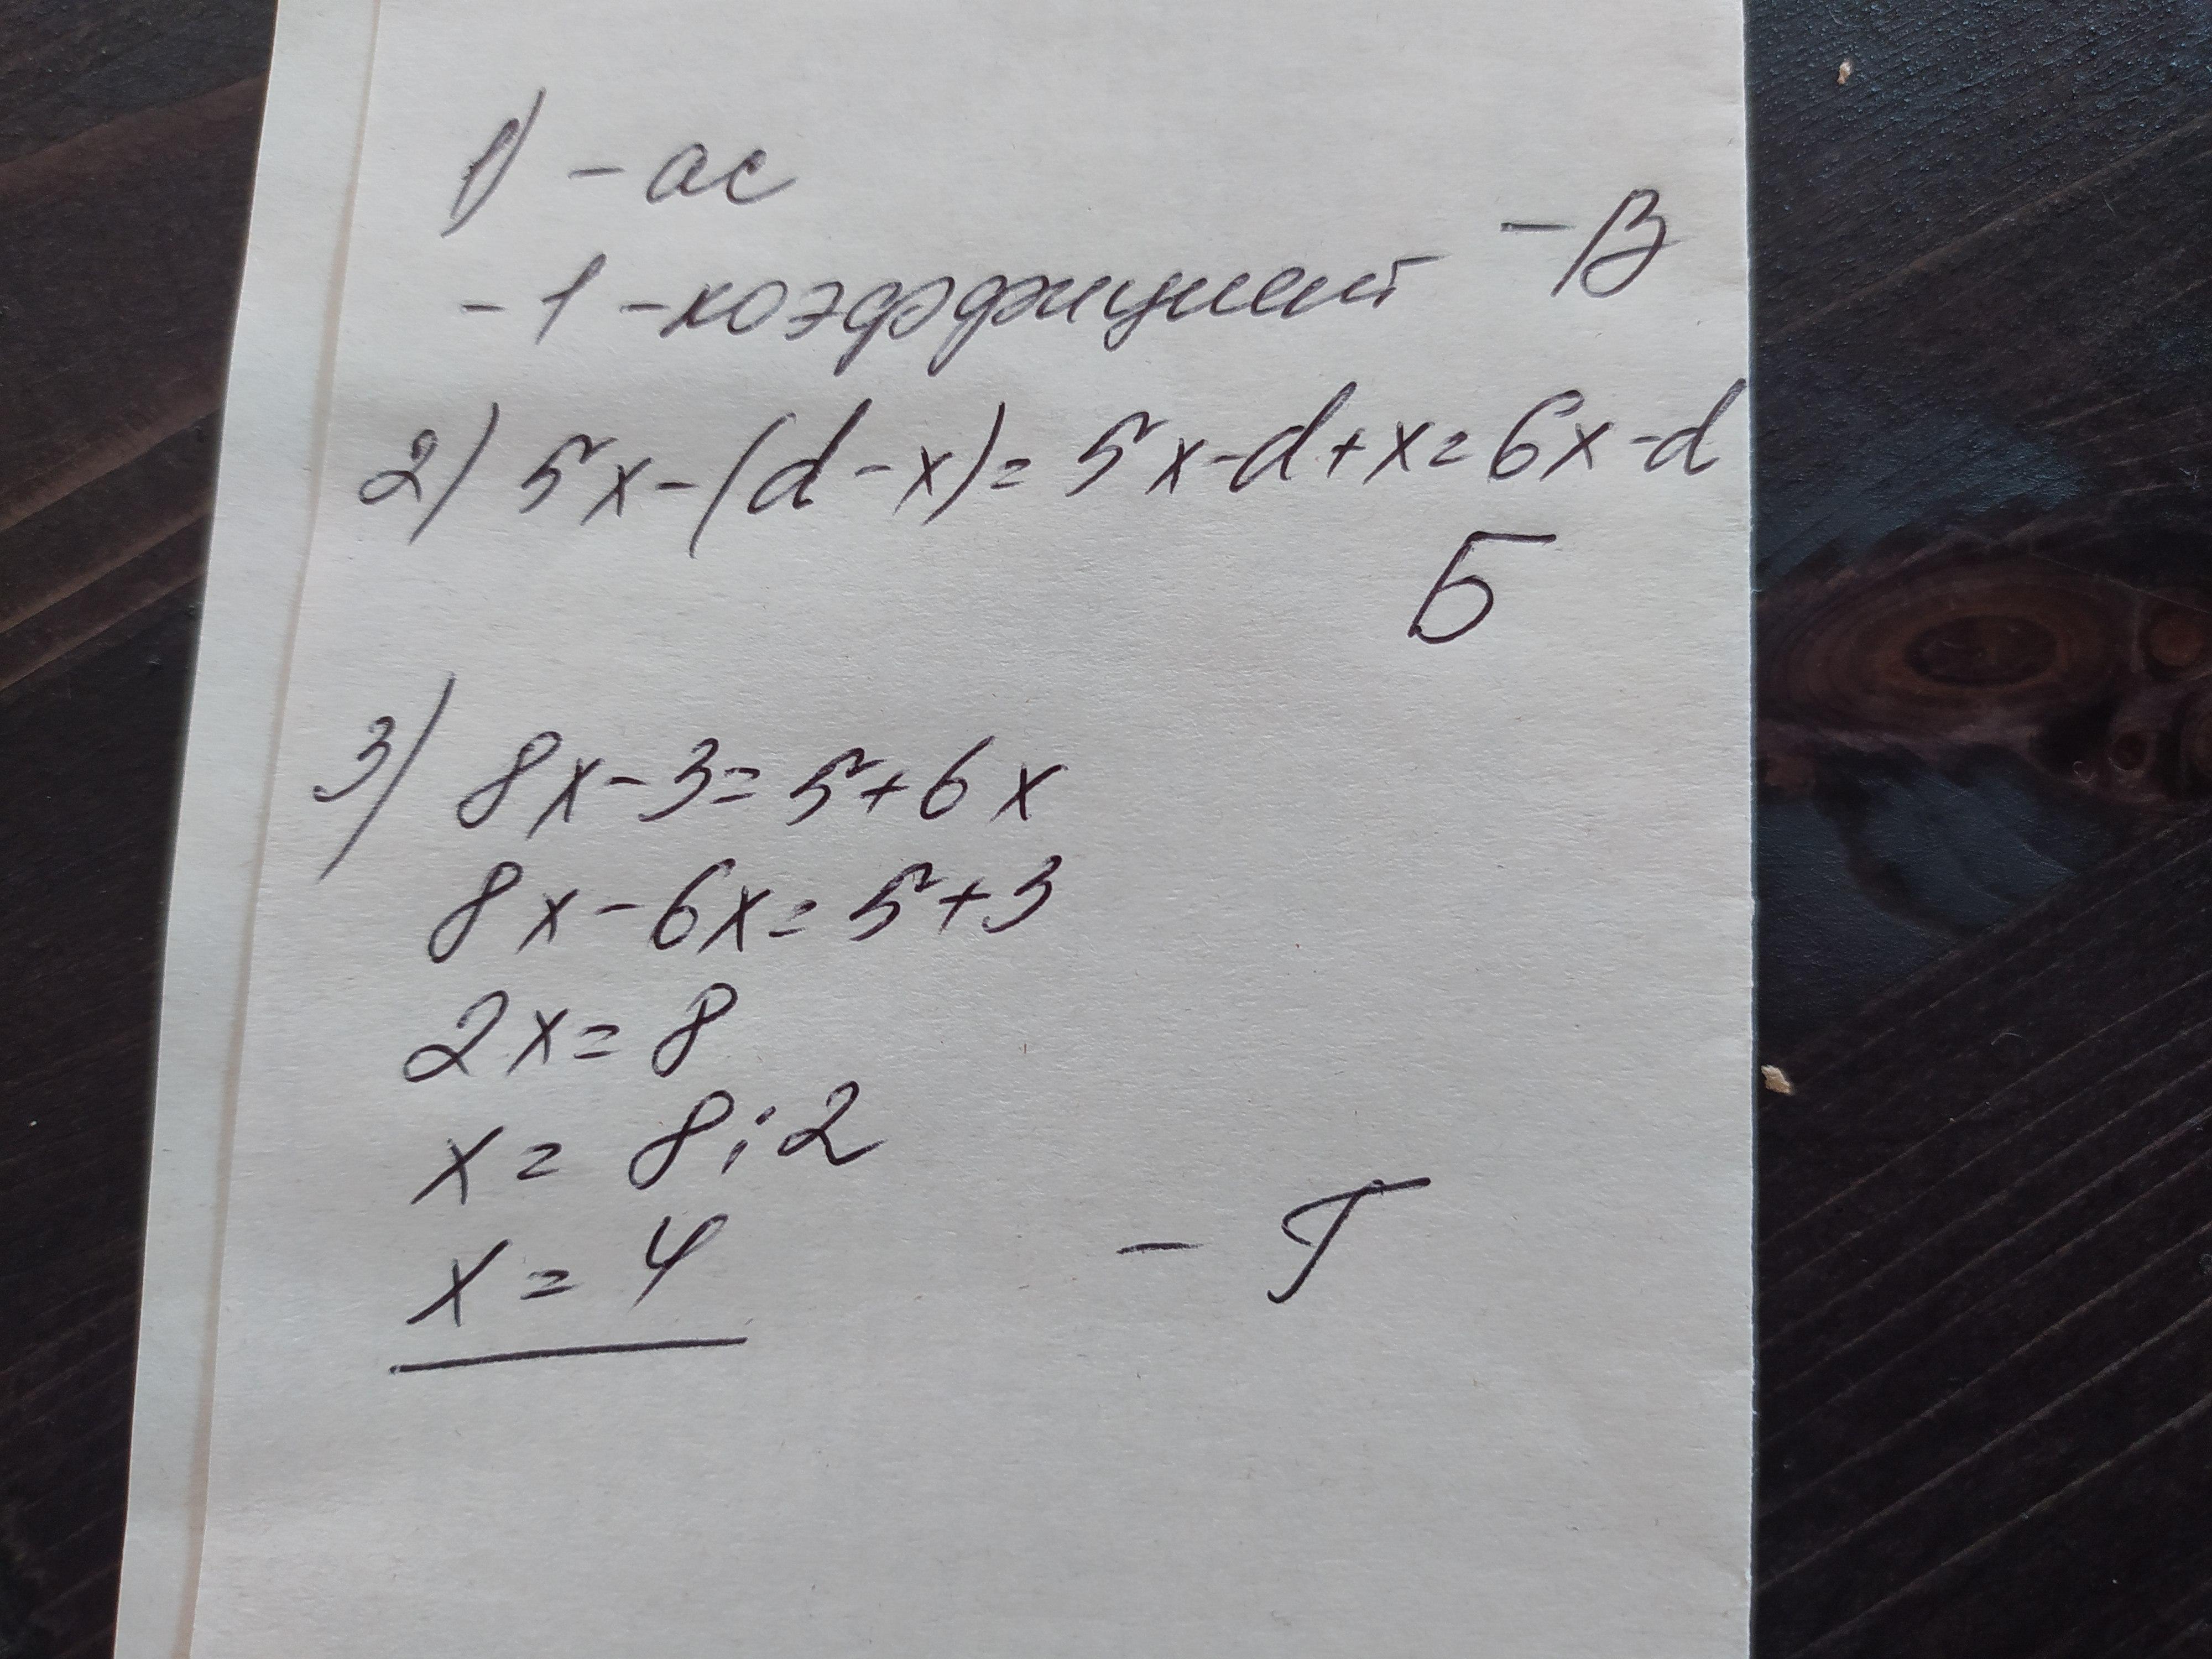 1) - ac
- 1 - коэффициент - В
2) 5x - (d - x) = 5x - d + x = 6x - d
Б
3) 8x - 3 = 5 + 6x
8x - 6x = 5 + 3
2x = 8
x = 8 : 2
x = 4 - Г